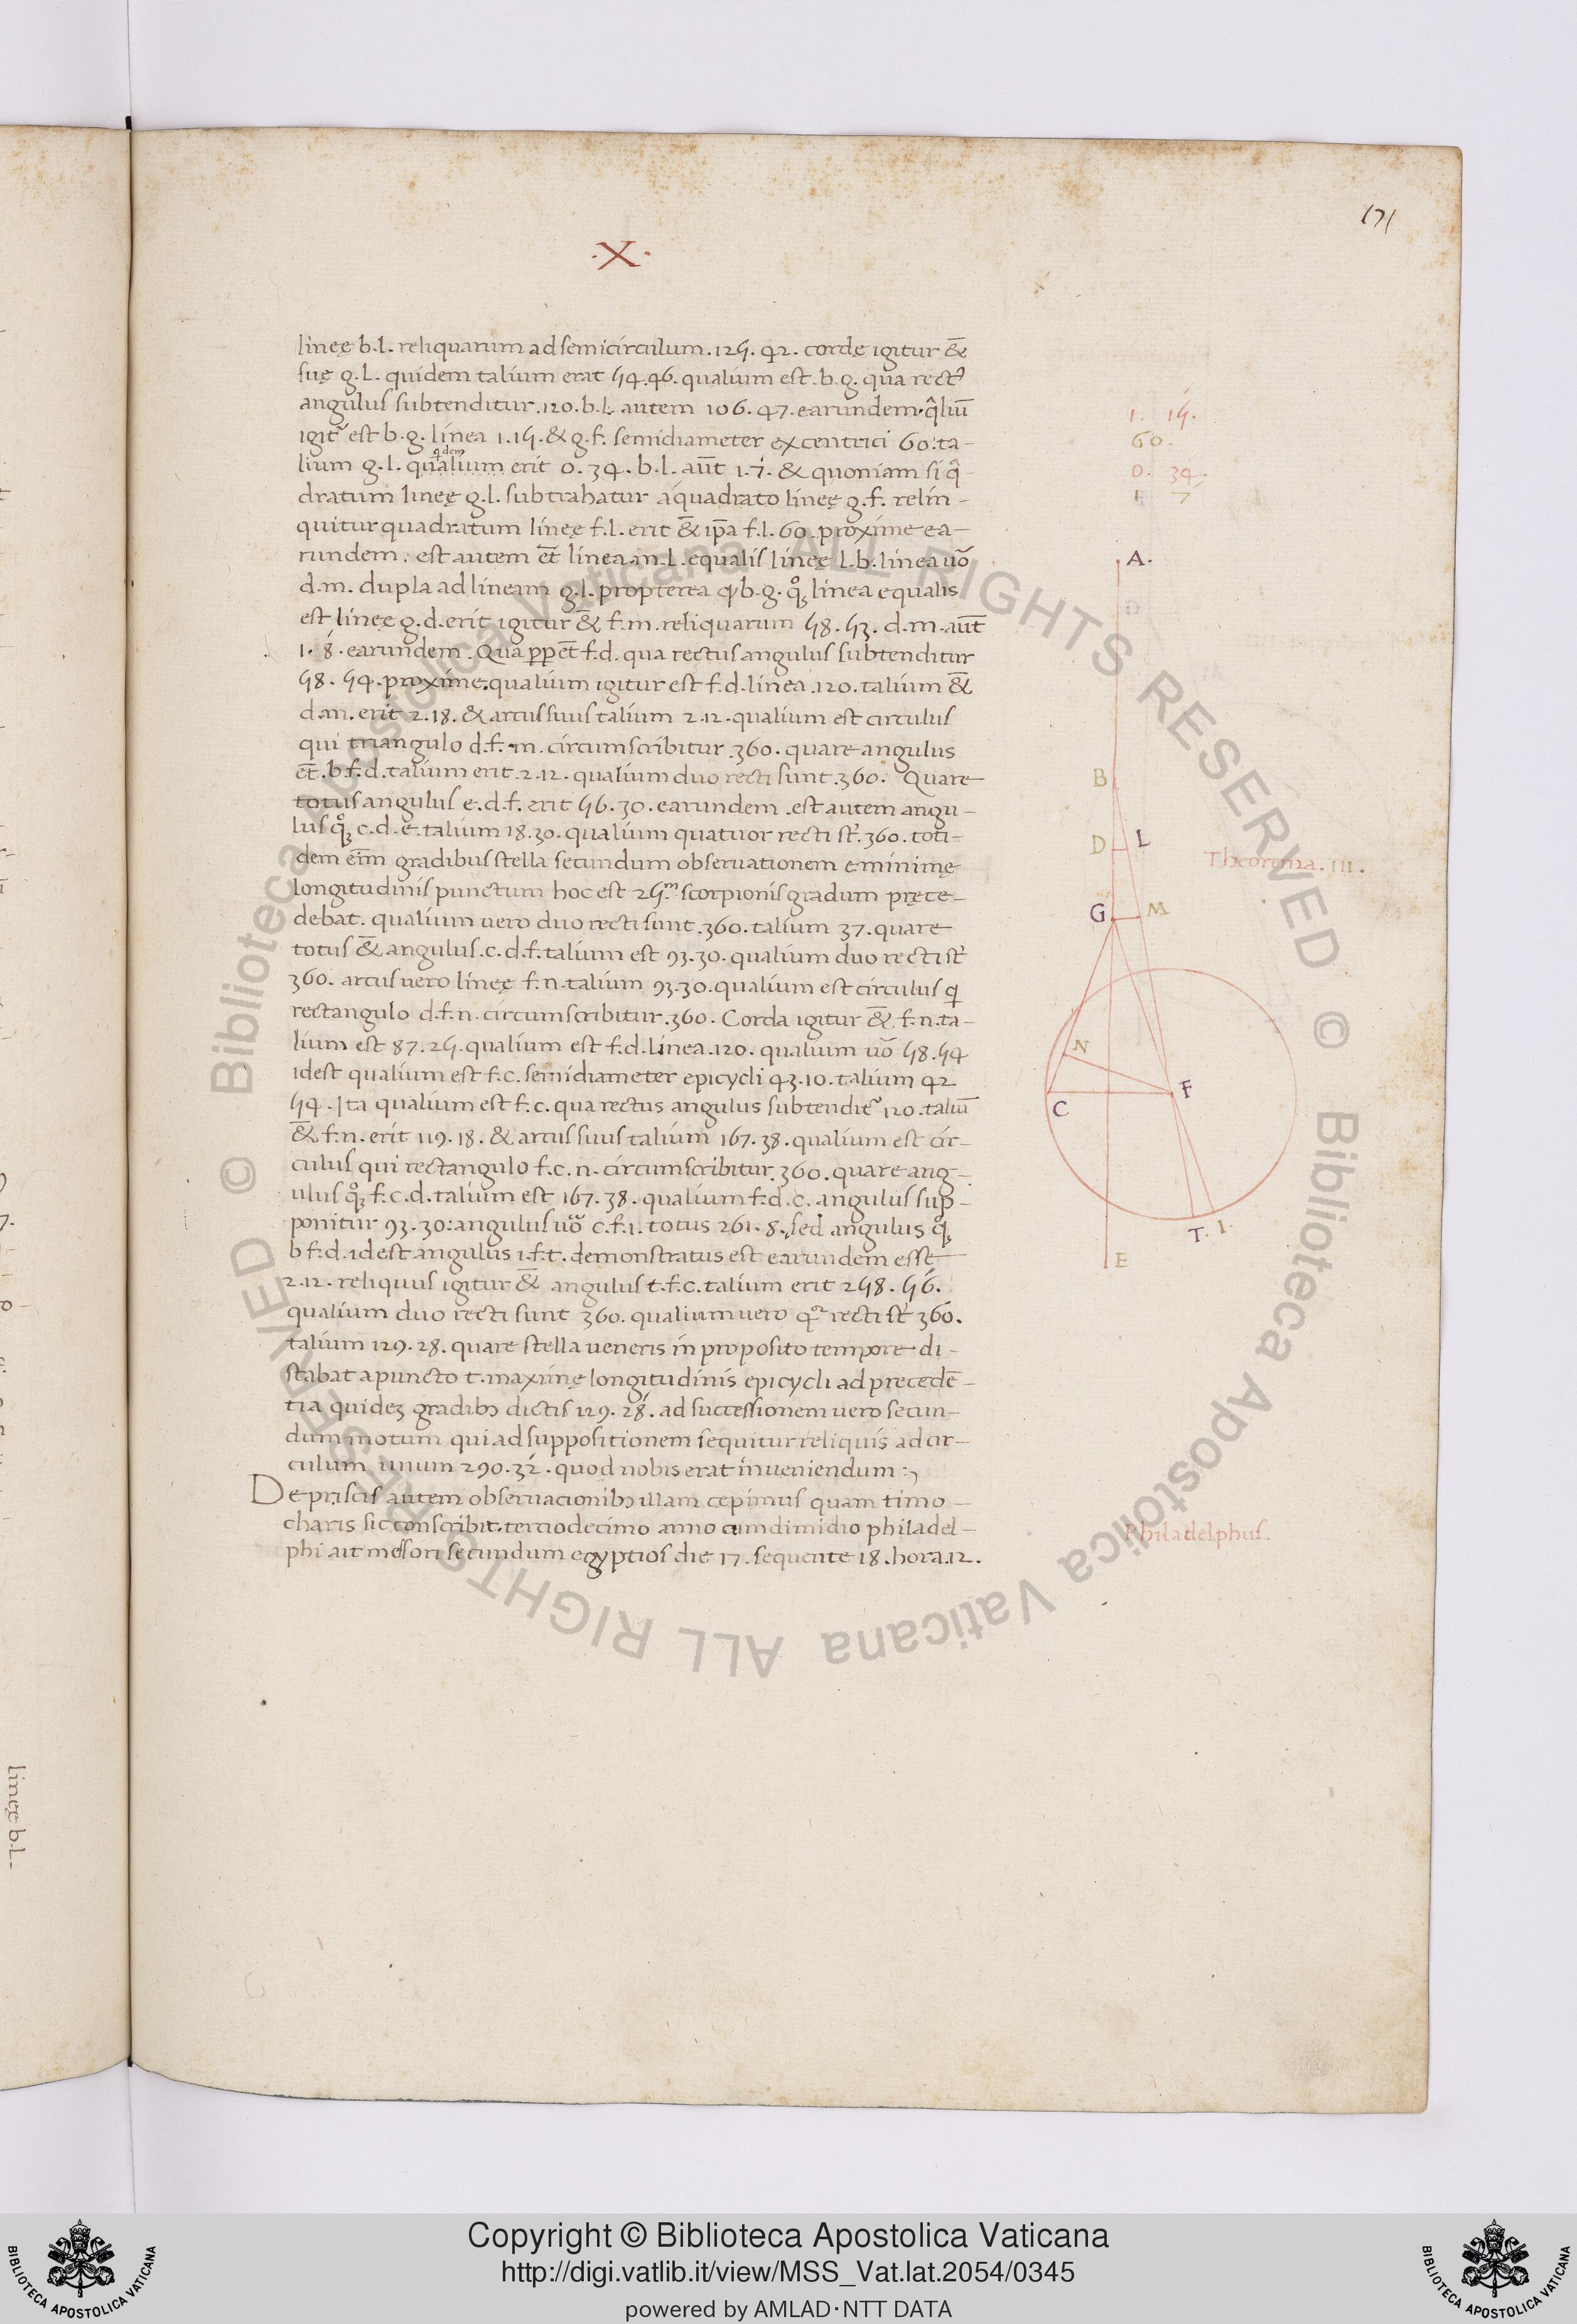 171
·X·
lineę b.l. reliquarum ad semicirculum .125. 42. cordę igitur &̅
suę g.l. quidem talium erat 54.46. qualium est .b.g. qua rectꝰ
angulus subtenditur .120. b.l. autem 106. 47. earundem. q̃liũ
igit᷑ est b.g. linea 1.15. & g.f. semidiameter excentrici 60. ta-
lium g.l. qualium q̃dem erit 0. 34. b.l. aut̅ 1.7. & quoniam si q̃
dratum lineę g.l. subtrahatur a quadrato lineę g.f. relin-
quitur quadratum lineę f.l. erit &̅ ip̅a f.l. 60. proxime ea-
rundem. est autem et̅ linea m.l. equalis lineę l.b. linea uo̅
d.m. dupla ad lineam g.l. propterea ꝙ b.g. qꝫ linea equalis
est lineę g.d. erit igitur &̅ f.m. reliquarum 58. 53. d.m. aut̅
1. 8. earundem. Qua ꝓp et̅ f.d. qua rectus angulus subtenditur
58. 54. proxime. qualium igitur est f.d. linea .120. talium &̅
d.m. erit 2.18. & arcus suus talium 2.12. qualium est circulus
qui triangulo d.f.m. circumscribitur .360. quare angulus
et̅ .b.f.d. talium erit .2.12. qualium duo recti sunt .360. Quare
totus angulus e.d.f. erit 56.30. earundem. est autem angu-
lus qꝫ c.d.e. talium 18.30. qualium quatuor recti st̅ .360. toti-
dem eim̅ gradibus stella secundum obseruationem e minimę
longitudinis punctum hoc est 25.ᵐ scorpionis gradum pręce-
debat. qualium uero duo recti sunt .360. talium 37. quare
totus &̅ angulus .c.d.f. talium est 93.30. qualium duo recti st̅
360. arcus uero lineę f.n. talium 93.30. qualium est circulus q̄
rectangulo d.f.n. circumscribitur .360. Corda igitur &̅ f.n. ta-
lium est 87.25. qualium est f.d. linea .120. qualium uo̅ 58.54
idest qualium est f.c. semidiameter epicycli 43.10. talium 42
54. Ita qualium est f.c. qua rectus angulus subtendit᷑ 120. taliu̅
&̅ f.n. erit 119.18. & arcus suus talium 167.38. qualium est cir-
culus qui rectangulo f.c.n. circumscribitur .360. quare ang-
ulus qꝫ f.c.d. talium est 167.38. qualium f.d.c. angulus sup-
ponitur 93.30: angulus uo̅ c.f.i. totus 261.8. sed angulus qꝫ
b f.d. idest angulus i.f.t. demonstratus est earundem esse
2.12. reliquus igitur &̅ angulus t.f.c. talium erit 258. 56.
qualium duo recti sunt 360. qualium uero qͦr recti st̅ 360.
talium 129.28. quare stella ueneris in proposito tempore di-
stabat a puncto t. maximę longitudinis epicycli ad precede̅-
tia quideꝫ gradibꝰ dictis 129. 28. ad successionem uero secun-
dum motum qui ad suppositionem sequitur reliquis ad cir-
culum unum 290.32. quod nobis erat inueniendum :,
De priscis autem obseruacionibꝰ illam cepimus quam timo-
charis sic conscribit. terciodecimo anno cum dimidio philadel-
phi ait messori secundum egyptios die 17. sequente 18. hora .12.
1. 15.
60.
0. 34.
1 7
A.
B
D L
Theorema .III.
G M
N
F
C
T. I.
E
Philadelphus.
lineę b.l.-
© Biblioteca Apostolica Vaticana ALL RIGHTS RESERVED © Biblioteca Apostolica Vaticana ALL RIGHTS RESERVED
Copyright © Biblioteca Apostolica Vaticana
http://digi.vatlib.it/view/MSS_Vat.lat.2054/0345
powered by AMLAD·NTT DATA
BIBLIOTECA APOSTOLICA VATICANA
BIBLIOTECA APOSTOLICA VATICANA